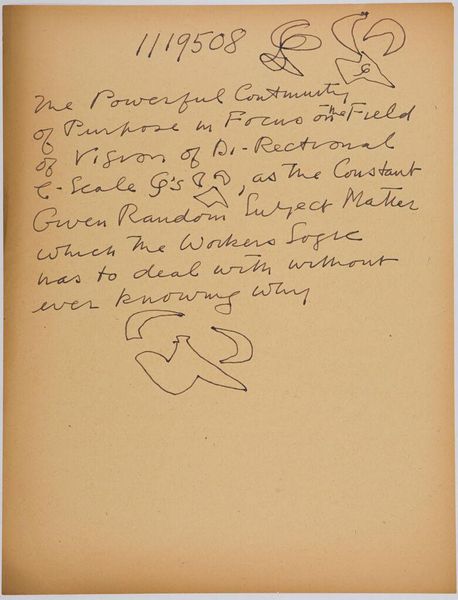 1119508
The Powerful Continuity
of Purpose in Focus on the Field
of Vision of Di-Rectional
C-Scale G's , as the Constant
Given Random Subject Matter
which the Workers Logic
has to deal with without
ever knowing why